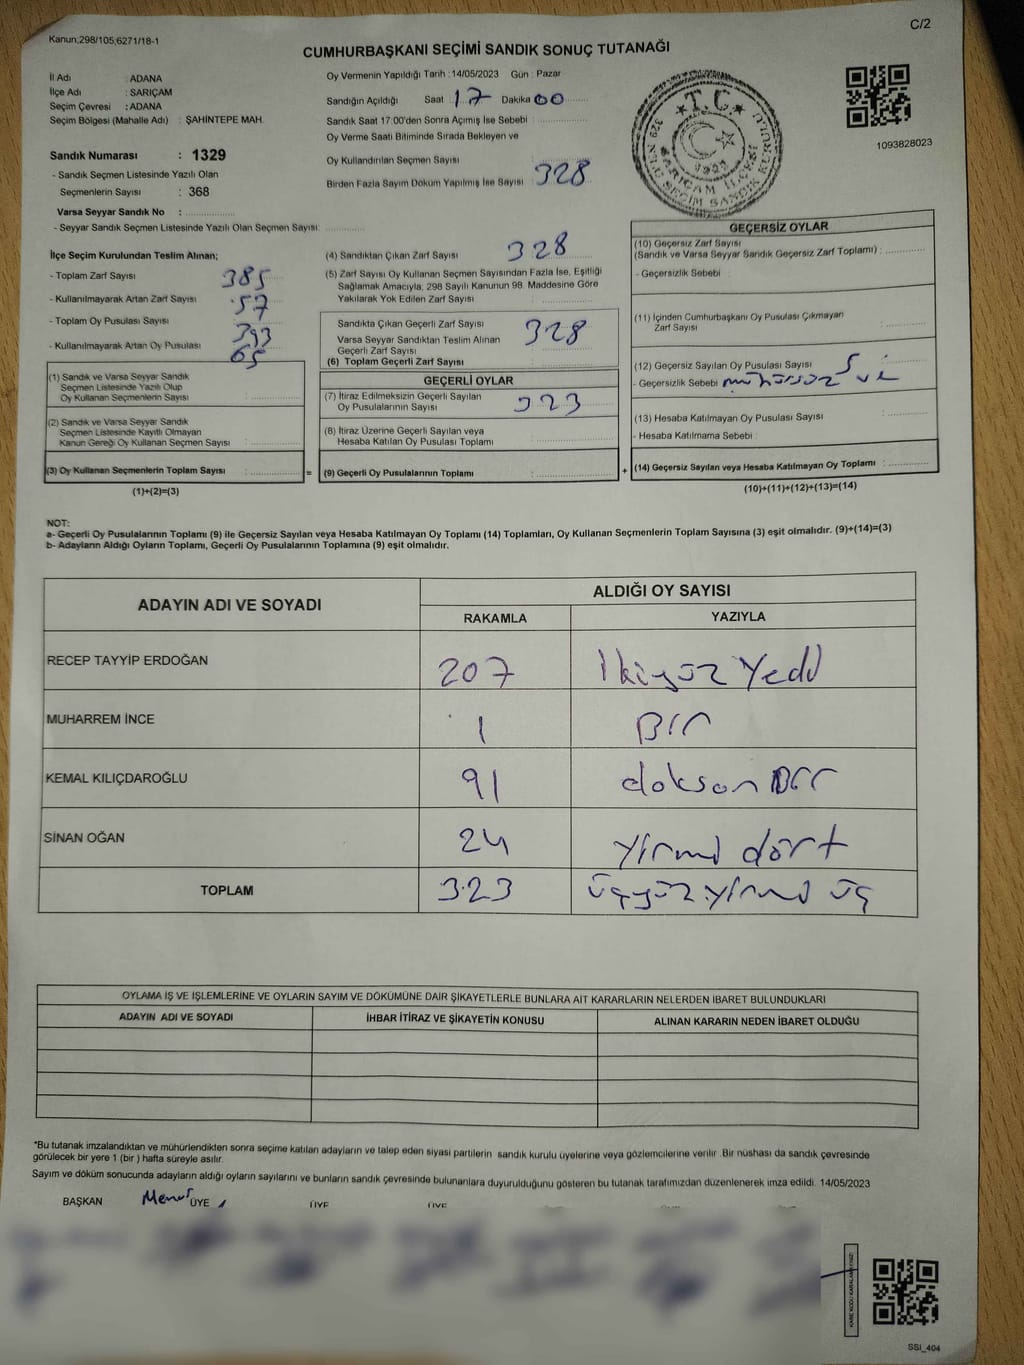 C/2
Kanun;298/105;6271/18-1
CUMHURBAŞKANI SEÇİMİ SANDIK SONUÇ TUTANAĞI
İl Adı : ADANA
İlçe Adı : SARIÇAM
Seçim Çevresi : ADANA
Seçim Bölgesi (Mahalle Adı) : ŞAHİNTEPE MAH.
Sandık Numarası : 1329
- Sandık Seçmen Listesinde Yazılı Olan
Seçmenlerin Sayısı : 368
Varsa Seyyar Sandık No :
- Seyyar Sandık Seçmen Listesinde Yazılı Olan Seçmen Sayısı:
Oy Vermenin Yapıldığı Tarih :14/05/2023 Gün : Pazar
Sandığın Açıldığı Saat 17 Dakika 00
Sandık Saat 17:00'den Sonra Açımış İse Sebebi :
Oy Verme Saati Bitiminde Sırada Bekleyen ve
Oy Kullandırılan Seçmen Sayısı :
Birden Fazla Sayım Döküm Yapılmış İse Sayısı : 328
T.C.
SARIÇAM İLÇESİ
1923
329 NOLU SEÇİM SANDIK KURULU
1093828023
İlçe Seçim Kurulundan Teslim Alınan;
- Toplam Zarf Sayısı : 385
- Kullanılmayarak Artan Zarf Sayısı : 57
- Toplam Oy Pusulası Sayısı : 393
- Kullanılmayarak Artan Oy Pusulası : 65
(1) Sandık ve Varsa Seyyar Sandık
Seçmen Listesinde Yazılı Olup
Oy Kullanan Seçmenlerin Sayısı :
(2) Sandık ve Varsa Seyyar Sandık
Seçmen Listesinde Kayıtlı Olmayan
Kanun Gereği Oy Kullanan Seçmen Sayısı :
(3) Oy Kullanan Seçmenlerin Toplam Sayısı :
(1)+(2)=(3)
(4) Sandıktan Çıkan Zarf Sayısı : 328
(5) Zarf Sayısı Oy Kullanan Seçmen Sayısından Fazla İse, Eşitliği
Sağlamak Amacıyla; 298 Sayılı Kanunun 98. Maddesine Göre
Yakılarak Yok Edilen Zarf Sayısı :
Sandıkta Çıkan Geçerli Zarf Sayısı
Varsa Seyyar Sandıktan Teslim Alınan
Geçerli Zarf Sayısı
(6) Toplam Geçerli Zarf Sayısı : 328
GEÇERLİ OYLAR
(7) İtiraz Edilmeksizin Geçerli Sayılan
Oy Pusulalarının Sayısı : 323
(8) İtiraz Üzerine Geçerli Sayılan veya
Hesaba Katılan Oy Pusulası Toplamı :
= (9) Geçerli Oy Pusulalarının Toplamı : +
GEÇERSİZ OYLAR
(10) Geçersiz Zarf Sayısı
(Sandık ve Varsa Seyyar Sandık Geçersiz Zarf Toplamı) :
- Geçersizlik Sebebi :
(11) İçinden Cumhurbaşkanı Oy Pusulası Çıkmayan
Zarf Sayısı :
(12) Geçersiz Sayılan Oy Pusulası Sayısı : 5
- Geçersizlik Sebebi : mühürsüz ve
(13) Hesaba Katılmayan Oy Pusulası Sayısı :
- Hesaba Katılmama Sebebi :
(14) Geçersiz Sayılan veya Hesaba Katılmayan Oy Toplamı :
(10)+(11)+(12)+(13)=(14)
NOT:
a- Geçerli Oy Pusulalarının Toplamı (9) ile Geçersiz Sayılan veya Hesaba Katılmayan Oy Toplamı (14) Toplamları, Oy Kullanan Seçmenlerin Toplam Sayısına (3) eşit olmalıdır. (9)+(14)=(3)
b- Adayların Aldığı Oyların Toplamı, Geçerli Oy Pusulalarının Toplamına (9) eşit olmalıdır.
ADAYIN ADI VE SOYADI ALDIĞI OY SAYISI
RAKAMLA YAZIYLA
RECEP TAYYİP ERDOĞAN 207 İkiyüz Yedi
MUHARREM İNCE 1 Bir
KEMAL KILIÇDAROĞLU 91 doksan Bir
SİNAN OĞAN 24 yirmi dört
TOPLAM 323 üçyüz yirmi üç
OYLAMA İŞ VE İŞLEMLERİNE VE OYLARIN SAYIM VE DÖKÜMÜNE DAİR ŞİKAYETLERLE BUNLARA AİT KARARLARIN NELERDEN İBARET BULUNDUKLARI
ADAYIN ADI VE SOYADI İHBAR İTİRAZ VE ŞİKAYETİN KONUSU ALINAN KARARIN NEDEN İBARET OLDUĞU
*Bu tutanak imzalandıktan ve mühürlendikten sonra seçime katılan adayların ve talep eden siyasi partilerin sandık kurulu üyelerine veya gözlemcilerine verilir. Bir nüshası da sandık çevresinde
görülecek bir yere 1 (bir ) hafta süreyle asılır.
Sayım ve döküm sonucunda adayların aldığı oyların sayılarını ve bunların sandık çevresinde bulunanlara duyurulduğunu gösteren bu tutanak tarafımızdan düzenlenerek imza edildi. 14/05/2023
BAŞKAN ÜYE ÜYE ÜYE
SSİ_404